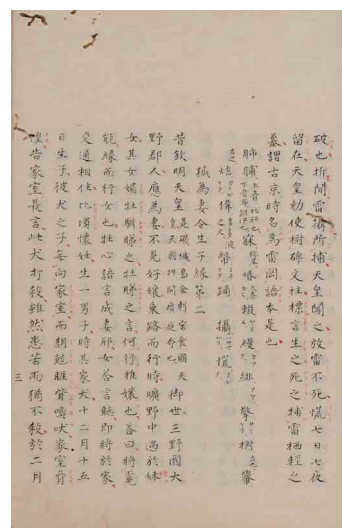 破也折間雷揩所捕天皇聞之放雷不死慌七日七夜
留在天皇勅使樹碑文柱標言生之死之捕雷栖軽之
墓謂古京時名為雷岡語本是也
狐為妻令生子縁第二
昔欽明天皇是磯城島金刺宮食國天皇天国押開廣庭命也御世三野國大
野郡人應為妻不覓好孃乗路而行時曠野中遇於姝
女其女媚壮馴睇之壮睇之言何行稚孃也答曰將覓
能縁而行女也壮心語言成妻耶女答言聴即將於家
交通相住比頃懐妊生一男子時其家犬十二月十五
日生子彼犬之子毎向家室而期尅睚眥嘷吠家室脅
惶告家室長言此犬打殺雖然患苦而猶不殺於二月
三